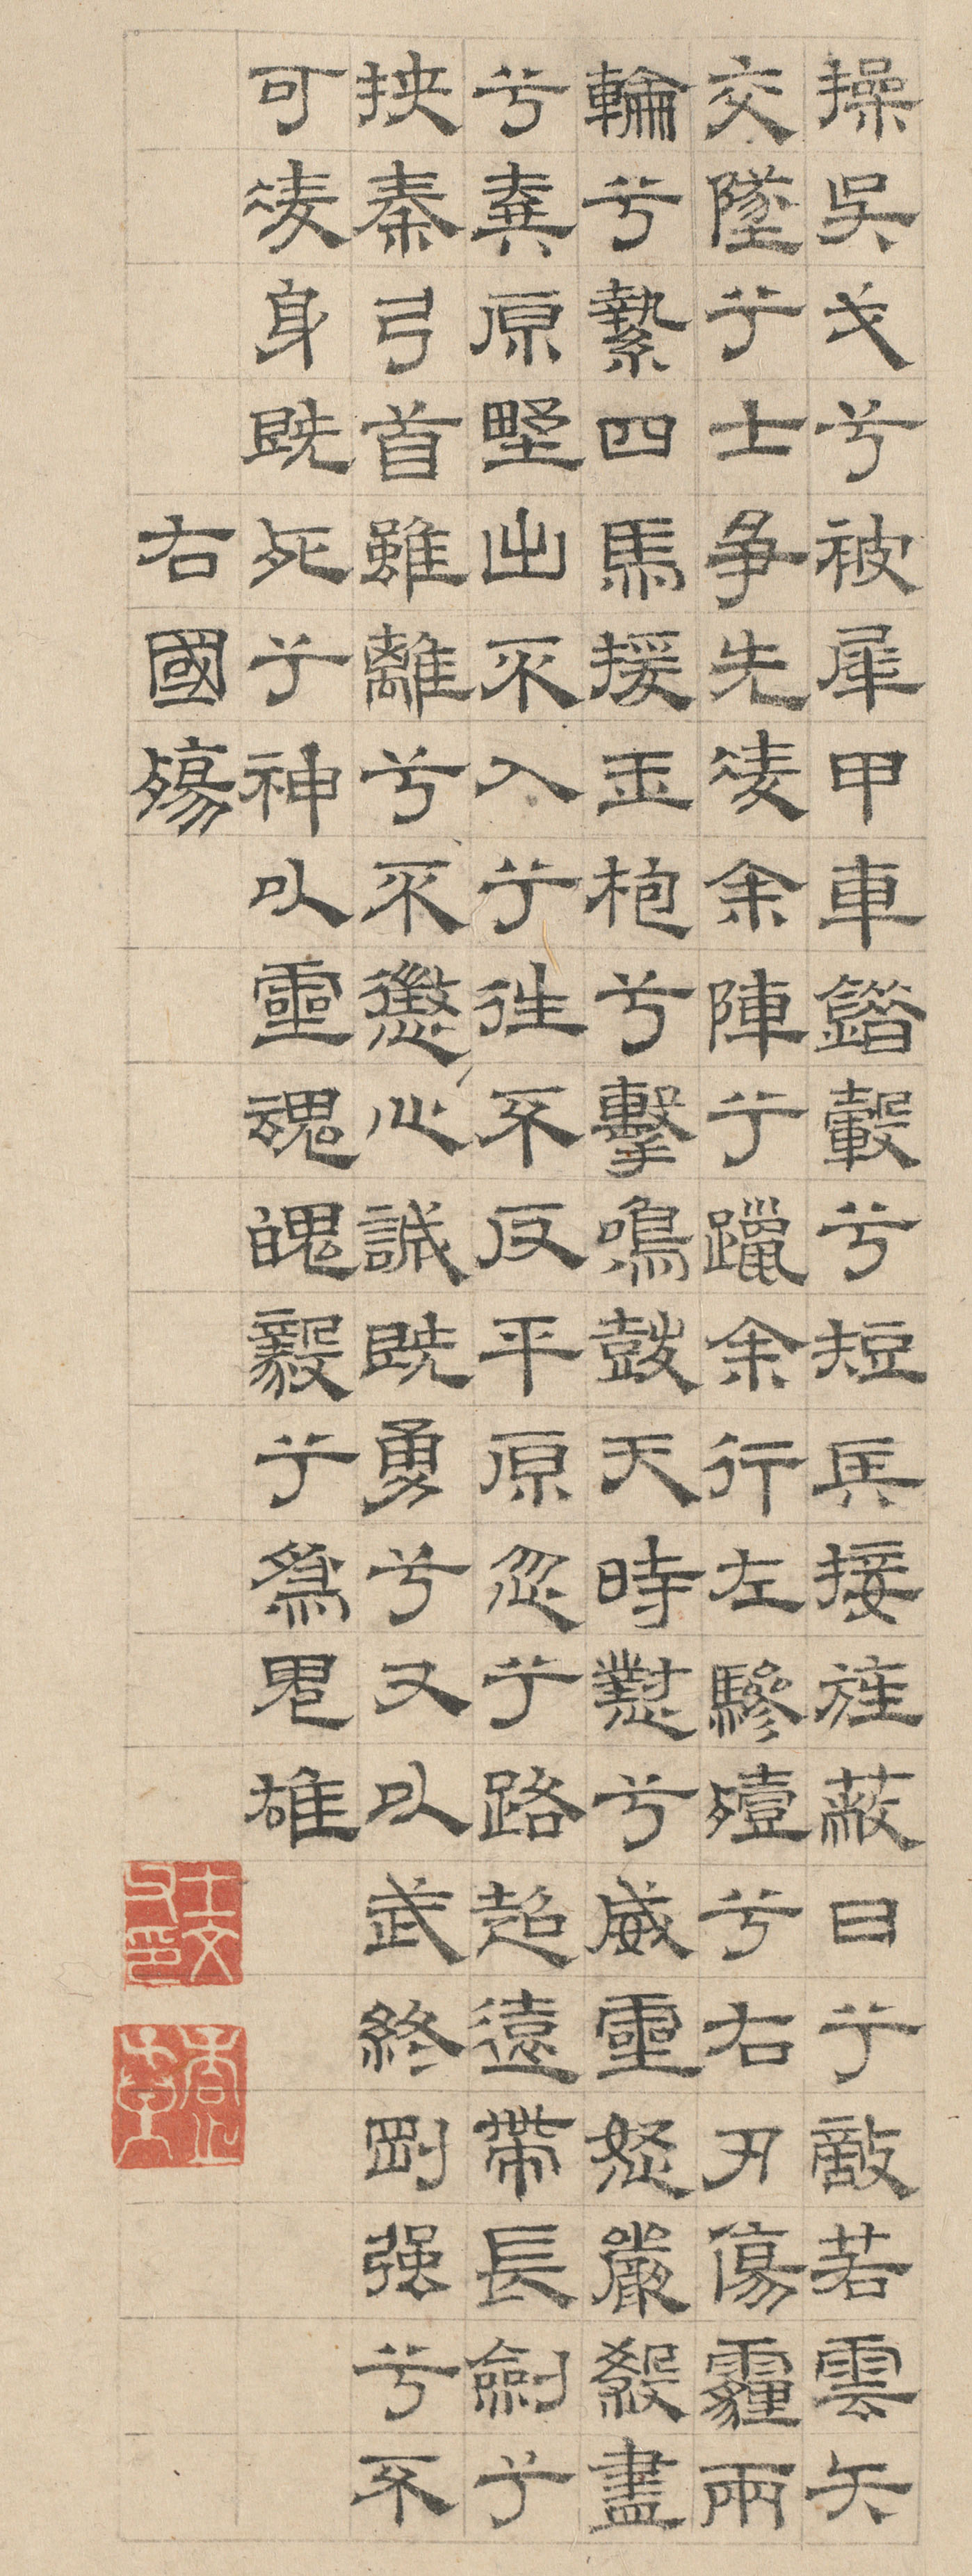 操吳戈兮被犀甲車錯轂兮短兵接旌蔽日兮敵若雲矢
交墜兮士爭先凌余陣兮躐余行左驂殪兮右刃傷霾兩
輪兮縶四馬援玉枹兮擊鳴鼓天時懟兮威靈怒嚴殺盡
兮棄原壄出不入兮往不反平原忽兮路超遠帶長劍兮
挾秦弓首雖離兮不懲心誠既勇兮又以武終剛强兮不
可凌身既死兮神以靈魂魄毅兮為鬼雄
右國殤